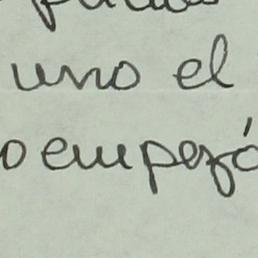 uno el
o empezó